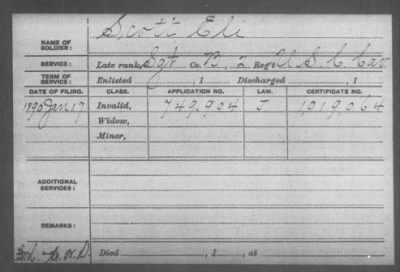 NAME OF SOLDIER: Scott Eli
SERVICE: Late rank, Sgt Co. B, 2 Reg't U S C Cav
TERM OF SERVICE: Enlisted , 1 Discharged , 1
DATE OF FILING. CLASS. APPLICATION NO. LAW. CERTIFICATE NO.
1890 Jan 17 Invalid, 749,904 J 1,019,064
Widow,
Minor,
ADDITIONAL SERVICES:
REMARKS:
Died , 1 , at